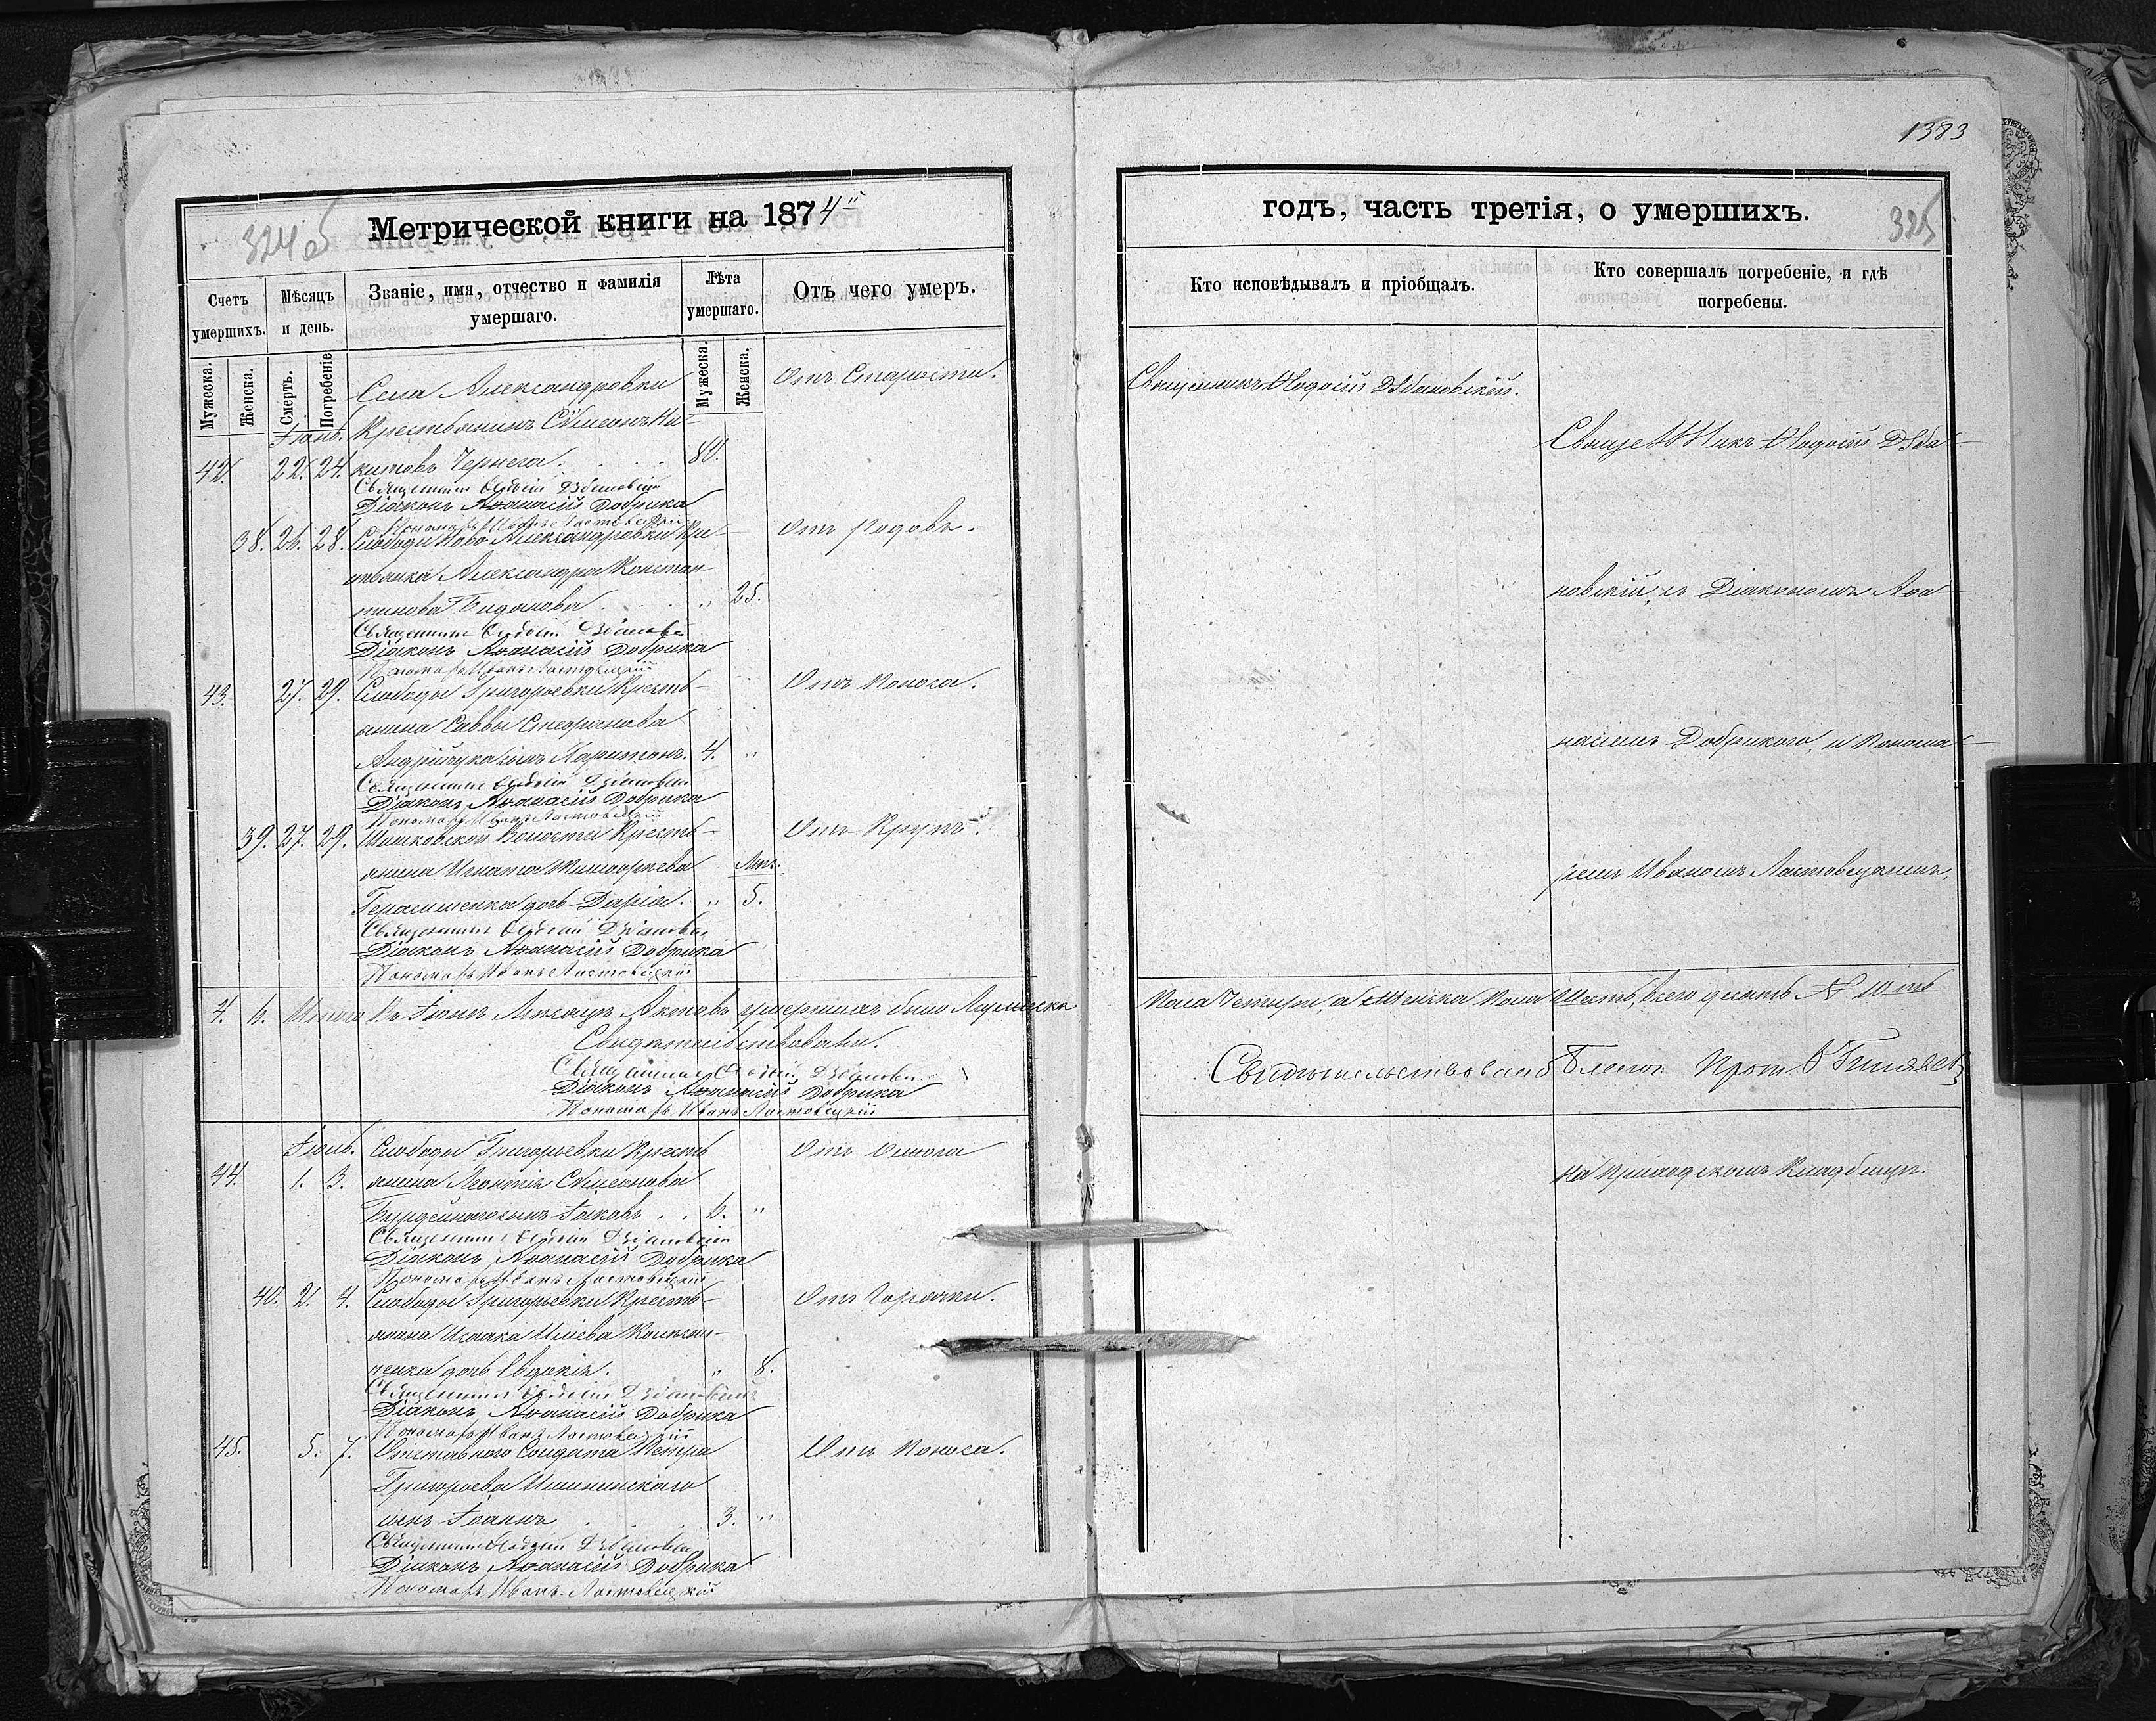 1383
Метрической книги на 1874й
годъ, часть третія, о умершихъ.
324 об
325
Счетъ умершихъ.
Мѣсяцъ и день.
Званіе, имя, отчество и фамилія умершаго.
Лѣта умершаго.
Отъ чего умеръ.
Кто исповѣдывалъ и пріобщалъ.
Кто совершалъ погребеніе, и гдѣ погребены.
Мужеска.
Женска.
Смерть.
Погребеніе
Мужеска.
Женска.
Села Александровки
Отъ Старости.
Священникъ Ѳеодосій Дзбановскій.
Іюнь. Крестьянинъ Сѵмеонъ Ни-
42. 22. 24. китовъ Чернега. 80.
Священникъ Ѳеодосій Дзбановскій
Діаконъ Аѳанасій Добрика
Пономарь Иванъ Ластовецкій
38. 26. 28. Слободы Ново Александровки Кре-
Отъ родовъ.
стьянка Александра Констан-
тинова 25.
Священникъ Ѳеодосій Дзбановскій
Діаконъ Аѳанасій Добрика
Пономарь Иванъ Ластовецкій
43. 27. 29. Слободы Григорьевки Кресть-
Отъ Поноса.
янина Саввы Стефанова
Андрійчука сынъ Харитонъ. 4. "
Священникъ Ѳеодосій Дзбановскій
Діаконъ Аѳанасій Добрика
Пономарь Иванъ Ластовецкій
39. 27. 29. Волости Кресть-
Отъ Крупъ.
янина Игната Тимоѳеева Мѣс.
Герасименка дочь Дарія. " 5.
Священникъ Ѳеодосій Дзбановскій
Діаконъ Аѳанасій Добрика
Пономарь Иванъ Ластовецкій
Священникъ Ѳеодосій Дзба-
новскій, съ Діакономъ Аѳа-
насіемъ Добрикою, и Понома-
ремъ Иваномъ Ластовецкимъ,
4. 6. Итого въ Іюнѣ Мѣсяцѣ Актовъ умершихъ было Мужеска
Пола Четыри, а Женска Пола Шесть, всего десять № 10ть
Свидѣтельствовали.
Священникъ Ѳеодосій Дзбановскій
Діаконъ Аѳанасій Добрика
Пономарь Иванъ Ластовецкій
Свидѣтельствовалъ Благоч. Прот.
Іюль. Слободы Григорьевки Кресть
44. 1. 3. янина Леонтія Сѵмеонова
сынъ Іаковъ. 6. "
Священникъ Ѳеодосій Дзбановскій
Діаконъ Аѳанасій Добрика
Пономарь Иванъ Ластовецкій
на Приходскомъ Кладбищѣ.
40. 2. 4. Слободы Григорьевки Кресть-
Отъ Горячки.
янина Исаака Иліева
ченка дочь Евдокія. " 8.
Священникъ Ѳеодосій Дзбановскій
Діаконъ Аѳанасій Добрика
Пономарь Иванъ Ластовецкій
45. 5. 7. Отставного Солдата Петра
Отъ Поноса.
Григорьева
сынъ Іоаннъ 3. "
Священникъ Ѳеодосій Дзбановскій
Діаконъ Аѳанасій Добрика
Пономарь Иванъ Ластовецкій